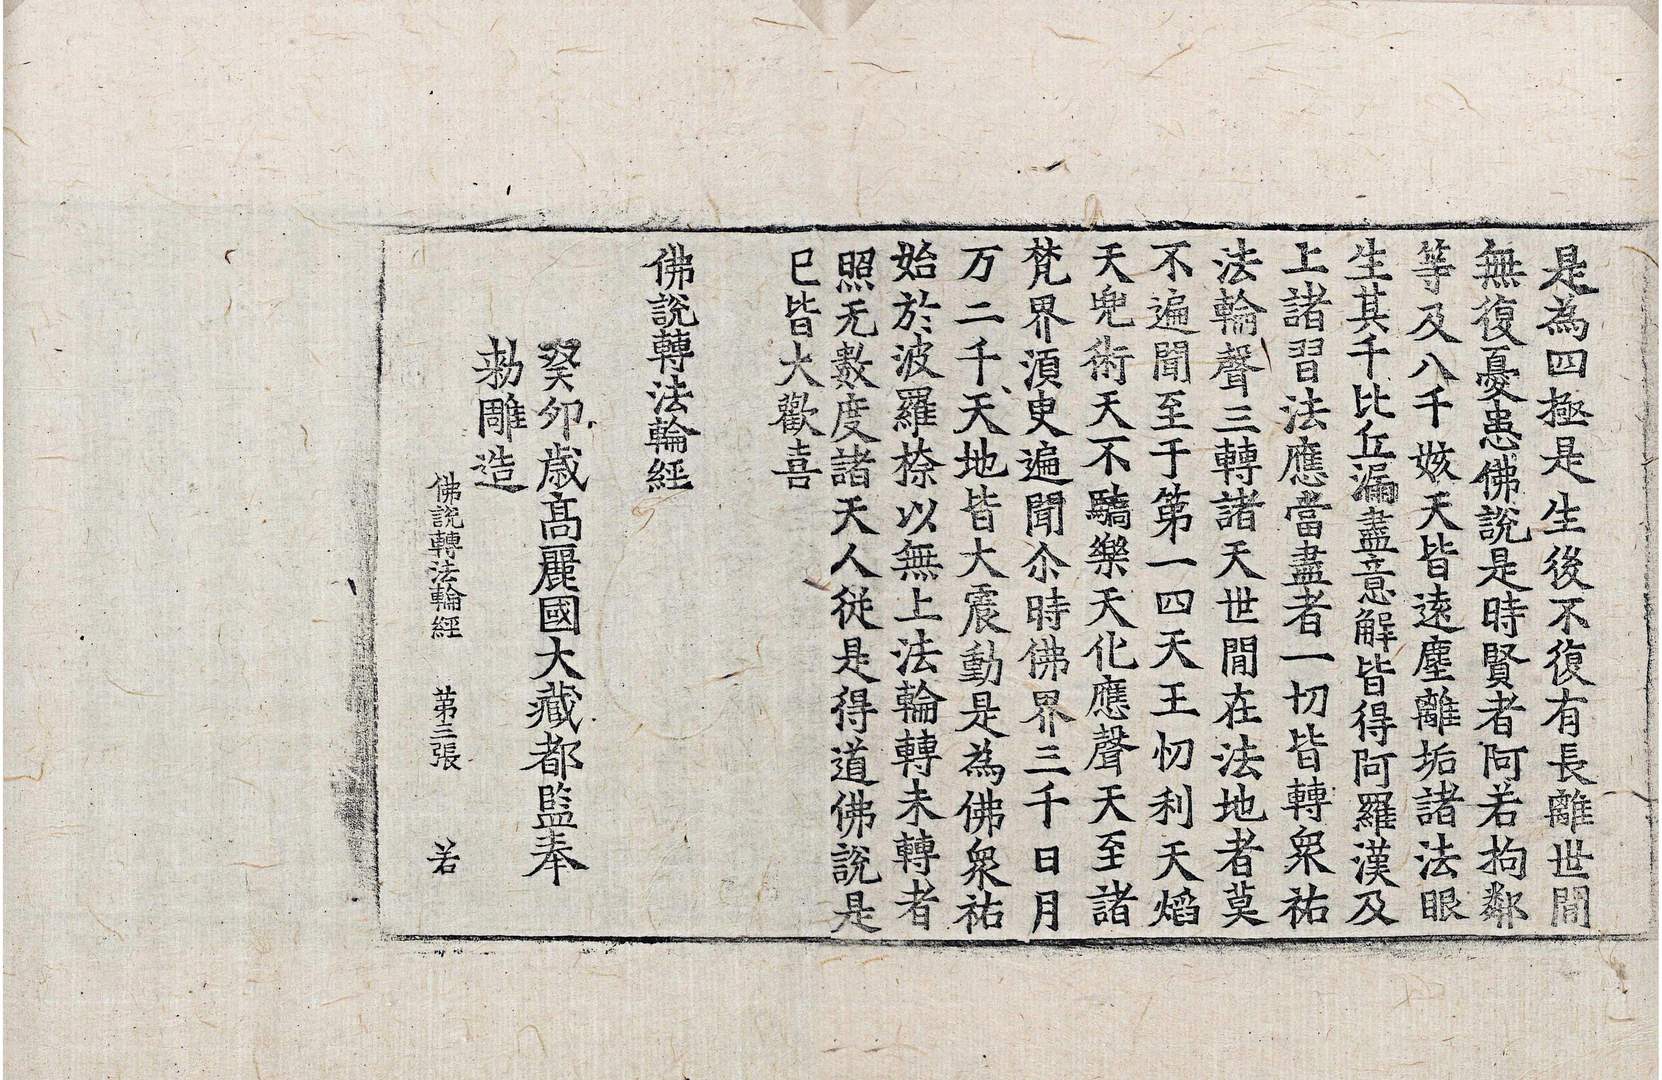 是為四極是生後不復有長離世間
無復憂患佛說是時賢者阿若拘鄰
等及八千姟天皆遠塵離垢諸法眼
生其千比丘漏盡意解皆得阿羅漢及
上諸習法應當盡者一切皆轉衆祐
法輪聲三轉諸天世間在法地者莫
不遍聞至于第一四天王忉利天焰
天兜術天不驕樂天化應聲天至諸
梵界須臾遍聞尒時佛界三千日月
万二千天地皆大震動是為佛衆祐
始於波羅㮈以無上法輪轉未轉者
照无數度諸天人從是得道佛說是
已皆大歡喜
佛說轉法輪經
癸卯歲高麗國大藏都監奉
勅雕造
佛說轉法輪經 第三張 若